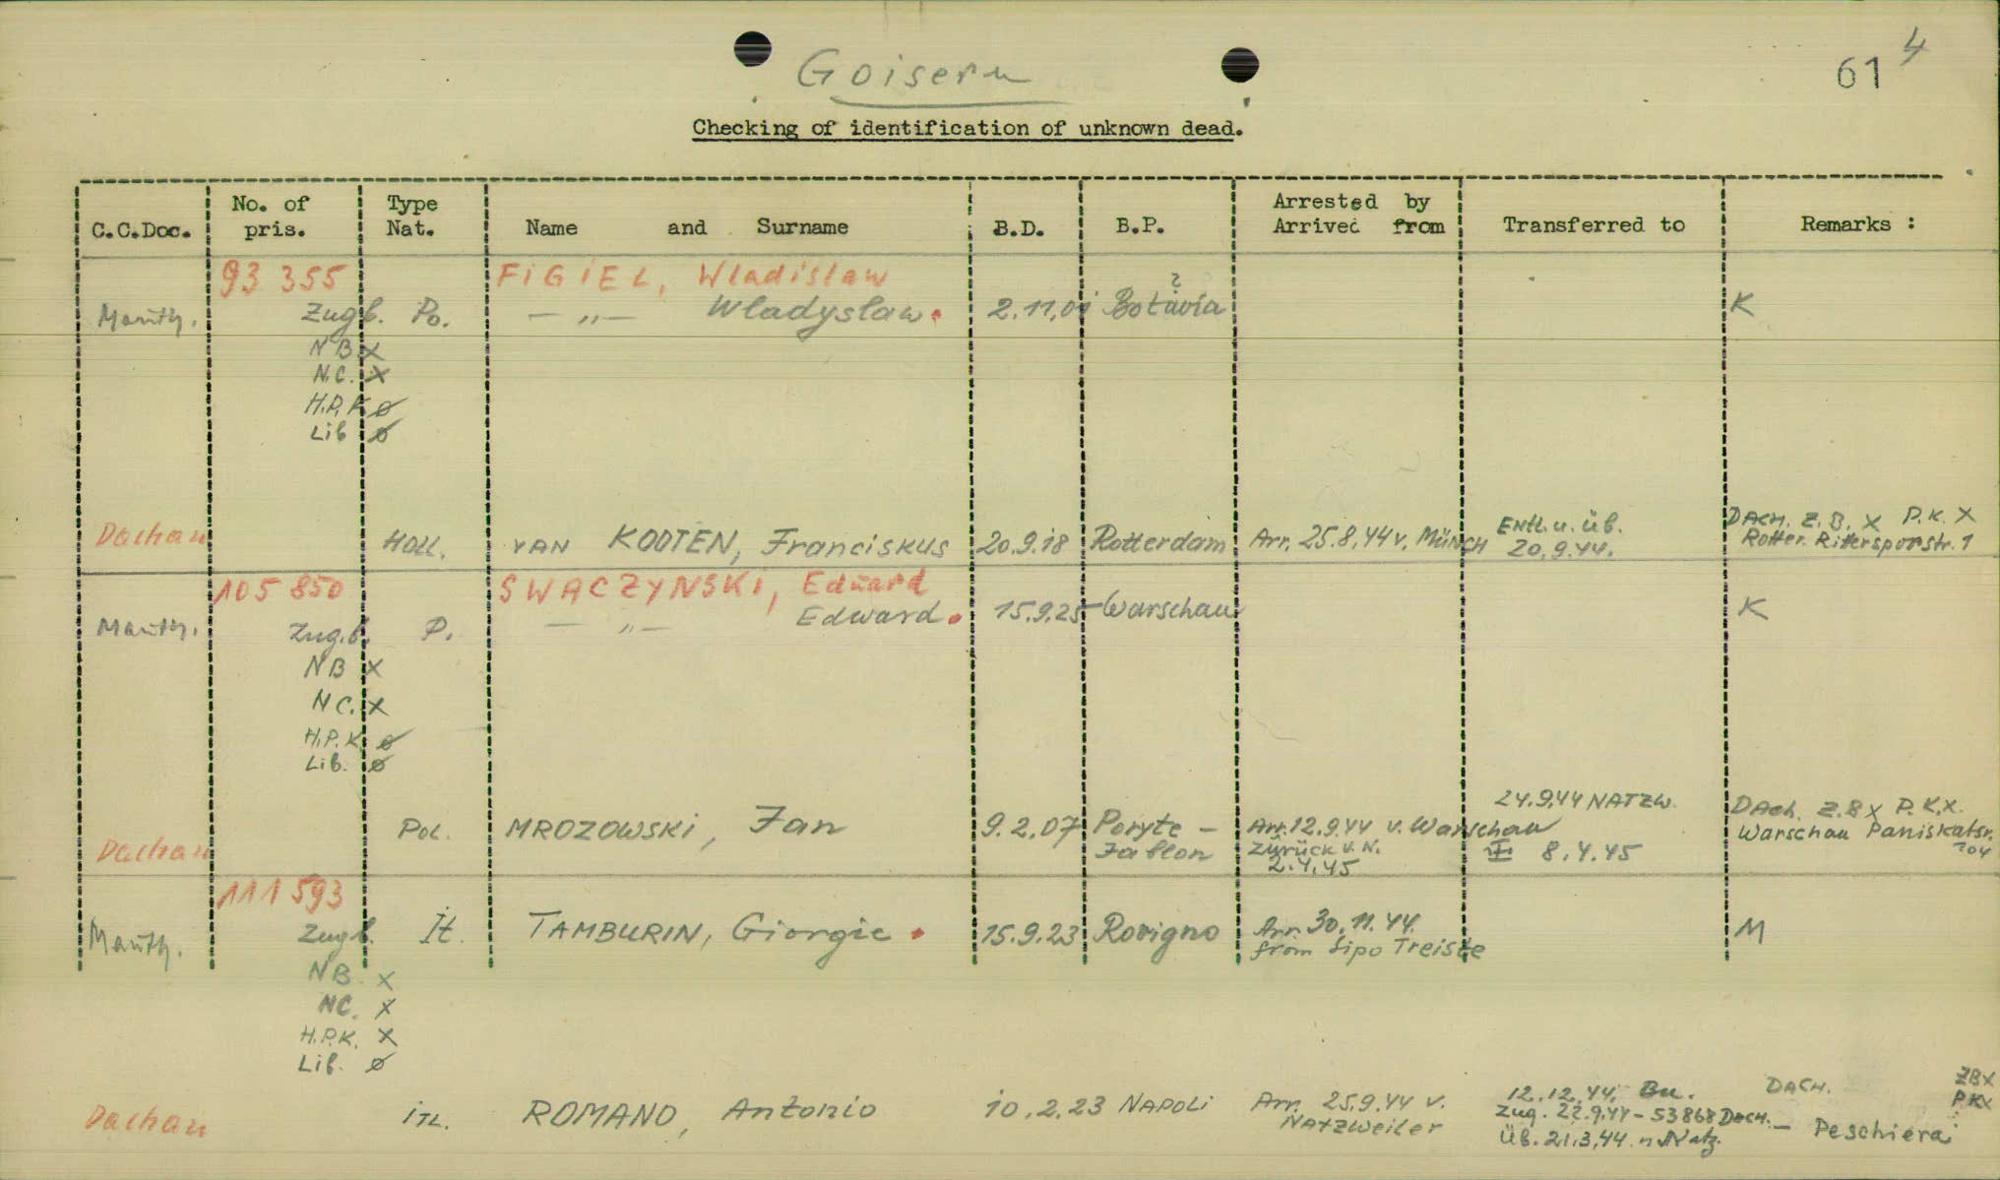 Goisern
61 4
Checking of identification of unknown dead.
C.C.Doc. No. of pris. Type Nat. Name and Surname B.D. B.P. Arrested by Arrived from Transferred to Remarks :
93 355 FIGIEL, Wladislaw
Mauth. Zugb. Po. — „ — Wladyslaw. 2.11.01 Botavia ? K
NB X
N.C. X
H.P.K ø
Lib ø
Dachau HOLL. VAN KOOTEN, Franciskus 20.9.18 Rotterdam Arr. 25.8.44 v. MÜNCH Entl. u. üb. 20.9.44. DACH. Z.B. X P.K. X
Rotter. Rittersporstr. 1
105 850 SWACZYNSKI, Eduard
Mauth. Zug.b. P. — „ — Edward. 15.9.25 Warschau K
NB X
NC. X
H.P.K ø
Lib. ø
24.9.44 NATZW.
Dachau Pol. MROZOWSKI, Jan 9.2.07 Poryte - Jablon Arr. 12.9.44 v. Warschau DAch. Z.B X P.K.X.
Zurück v. N. 2.4.45 II 8.4.45 Warschau Paniskatsr. 104
111 593
Mauth. Zugb. It. TAMBURIN, Giorgie . 15.9.23 Rovigno Arr. 30.11.44. from Sipo Treiste M
NB X
NC. X
H.P.K. X
Lib. ø
Dachau ITL. ROMANO, Antonio 10.2.23 NAPOLI Arr. 25.9.44 v. NATZWEILER 12.12.44. Bu. DACH. ZBX PKX
Zug. 22.9.44 - 53868 DACH. — Peschiera
Üb. 21.3.44 n Natz.